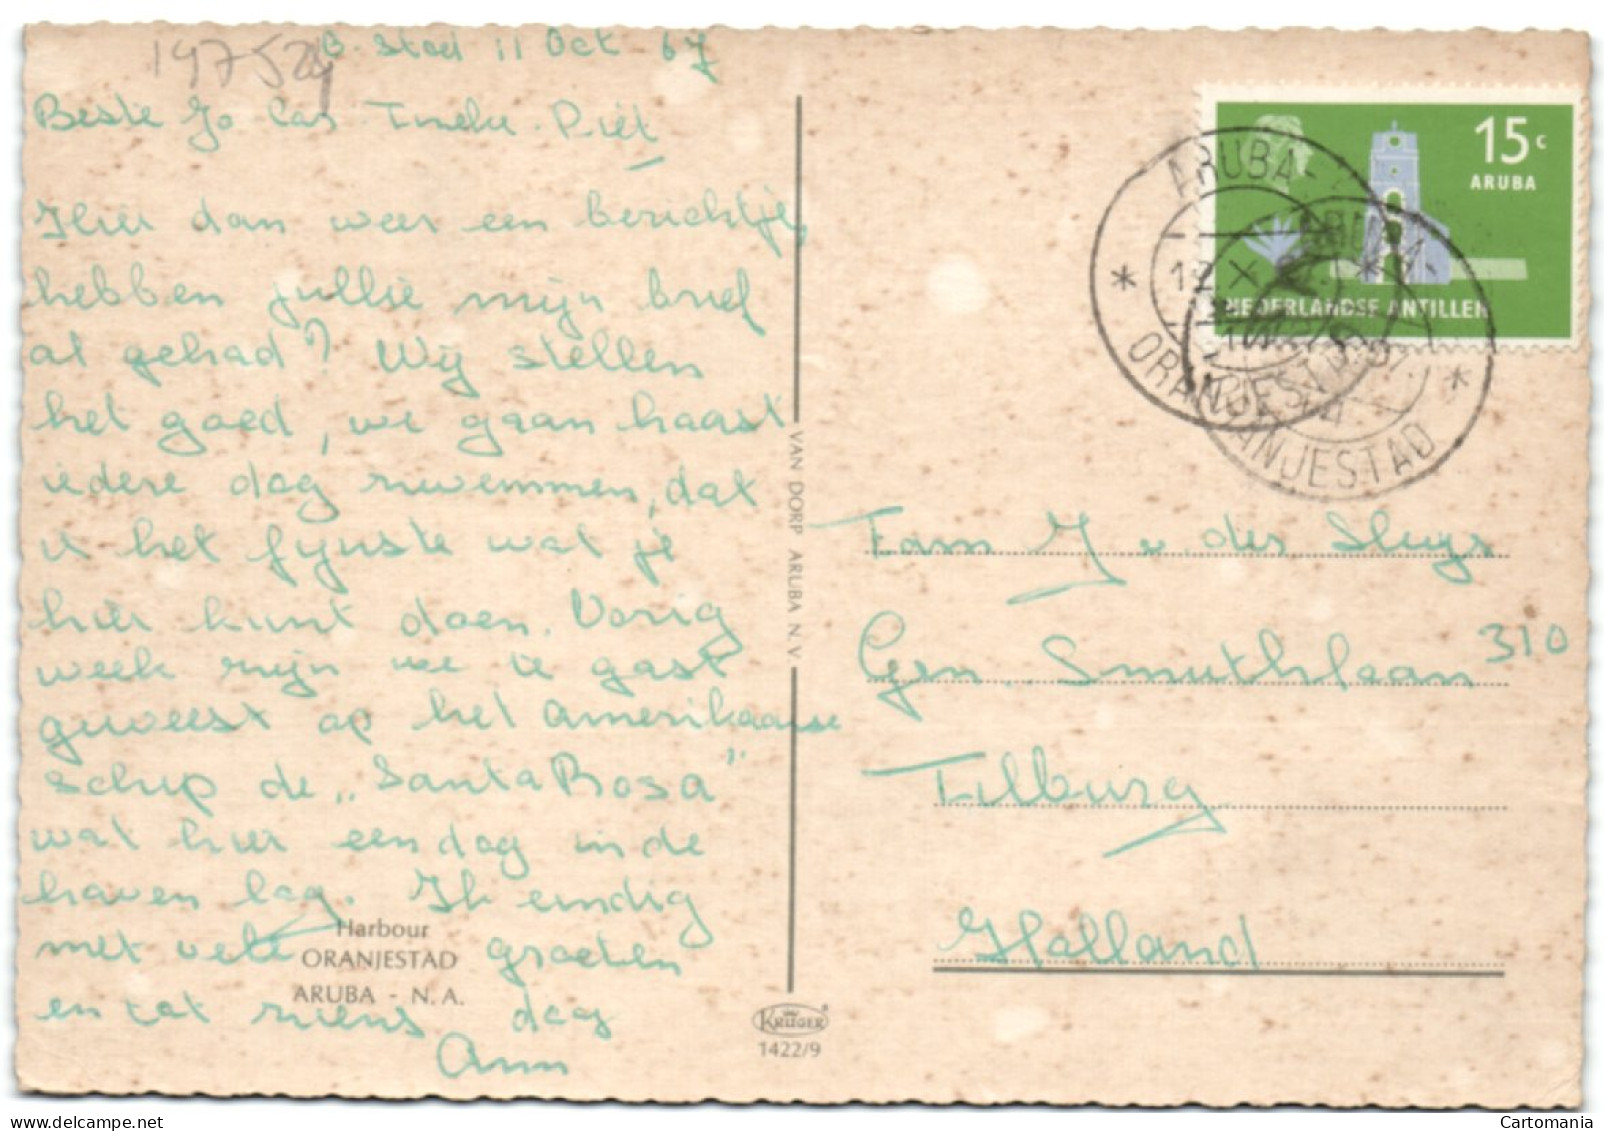 147524
O. Stad 11 Oct 67
Beste Jo Cas Tineke Piet
Hier dan weer een berichtje
hebben jullie mijn brief
al gehad? Wij stellen
het goed, we gaan haast
iedere dag zwemmen, dat
is het fijnste wat je
hier kunt doen. Vorig
week zijn we te gast
geweest op het Amerikaanse
schip de „Santa Rosa"
wat hier een dag in de
haven lag. Ik eindig
met vele groeten
en tot ziens dag
Ann
Harbour
ORANJESTAD
ARUBA - N.A.
VAN DORP ARUBA N.V.
KRUGER
1422/9
15c
ARUBA
NEDERLANDSE ANTILLEN
ARUBA
ORANJESTAD
ARUBA
ORANJESTAD
Fam J v. der Sluys
Gen. Smuthslaan 310
Tilburg
Holland
Cartomania